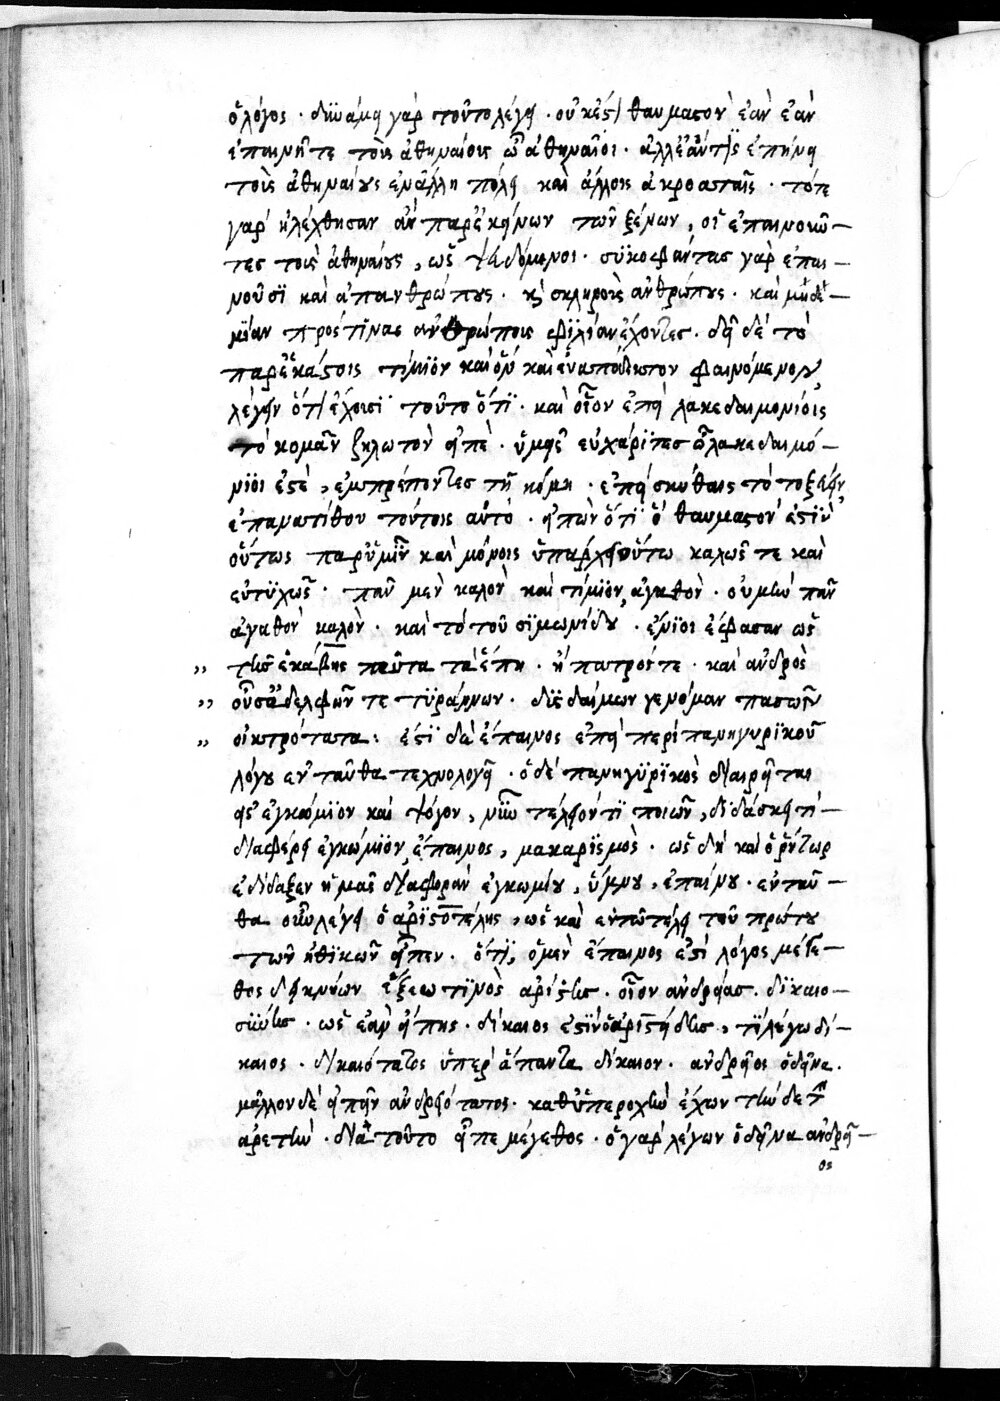 ὁ λόγος · δυνάμει γὰρ τοῦτο λέγει · οὐκ ἔστι θαυμαστὸν ἐὰν ἐὰν
ἐπαινῆτε τοὺς ἀθηναίους ὦ ἀθηναῖοι · ἀλλ' ἐὰν τὶς ἐπῄνει
τοὺς ἀθηναίους ἐν ἄλλη πόλει καὶ ἄλλοις ἀκροαταῖς · τότε
γὰρ ἠλέχθησαν ἂν παρ' ἐκείνων τῶν ξένων, οἱ ἐπαινοῦν–
τες τοὺς ἀθηναίους, ὡς ψευδόμενοι · συκοφάντας γὰρ ἐπαι–
νοῦσι καὶ ἀπανθρώπους · καὶ σκληροὺς ἀνθρώπους · καὶ μηδε–
μίαν πρός τινας ἀνθρώποις φιλίαν ἔχοντες · δεῖ δὲ τὸ
παρ' ἑκάστοις τίμιον καὶ ὂν καὶ ἐνασπάδιστον φαινόμενον,
λέγειν ὅτι ἔχοισι τοῦτο ὅτι · καὶ οἷον ἐπεὶ λακεδαιμονίοις
τὸ κομᾶν ζηλωτὸν εἰπὲ · ὑμεῖς εὐχάριτες ὦ λακεδαιμό–
νιοι ἐστὲ, ἐμπρέποντες τῇ κόμη · ἐπεὶ σκύθαις τὸ τοξεύειν,
ἐπανατίθου τούτοις αὐτὸ · εἰπὼν ὅτι ὁ θαυμαστὸν ἐστὶν
οὕτως παρ' ὑμῖν καὶ μόνοις ὑπάρχει οὕτω καλῶς τε καὶ
εὐτυχῶς · πᾶν μὲν καλὸν καὶ τίμιον, ἀγαθὸν · οὐ μὴν πᾶν
ἀγαθὸν καλὸν · καὶ τὸ τοῦ σιμωνίδου · ἔνιοι ἔφασαν ὡς
,, τῆς ἑκάβης ταῦτα τὰ ἔπη · ἡ πατρός τε · καὶ ἀνδρὸς
,, οὖσα δελφῶν τε τυράννων · δυσδαίμων γενοίμαν πασῶν
,, οἰκτρότατα : ἔστι δὲ ἔπαινος ἐπεὶ περὶ πανηγυρικοῦ
λόγου ἐνταῦθα τεχνολογεῖ · ὁ δὲ πανηγυρικὸς διαιρεῖται
εἰς ἐγκώμιον καὶ ψόγον, νῦν τέλειόν τι ποιῶν, διδάσκει τί–
διαφέρει ἐγκώμιον, ἔπαινος, μακαρισμὸς · ὡς δὴ καὶ ὁ ῥήτωρ
ἐδίδαξεν ἡμᾶς διαφορὰν ἐγκωμίου, ὕμνου, ἐπαίνου · ἐνταῦ–
θα οὖν λέγει ὁ ἀριστοτέλης, ὡς καὶ ἐν τῶ τέλει τοῦ πρώτου
τῶν ἠθικῶν εἶπεν · ὅτι, ὁ μὲν ἔπαινος ἐστὶ λόγος μέγε–
θος δεικνύων ἕξεώ τινὸς ἀρίστης · οἷον ἀνδρείας · δικαιο–
σύνης · ὡς ἐὰν εἴπης · δίκαιος ἐστὶν ὁ ἀριστείδης, τί λέγω δί–
καιος · δικαιότατος ὑπὲρ ἅπαντα δίκαιον · ἀνδρεῖος ὁ δεῖνα ·
μᾶλλον δὲ εἰπεῖν ἀνδρειότατος · καθ' ὑπεροχὴν ἔχων τήνδε τὴν
ἀρετὴν · διὰ τοῦτο εἶπε μέγεθος · ὁ γὰρ λέγων ὁ δεῖνα ἀνδρεῖ–
ος